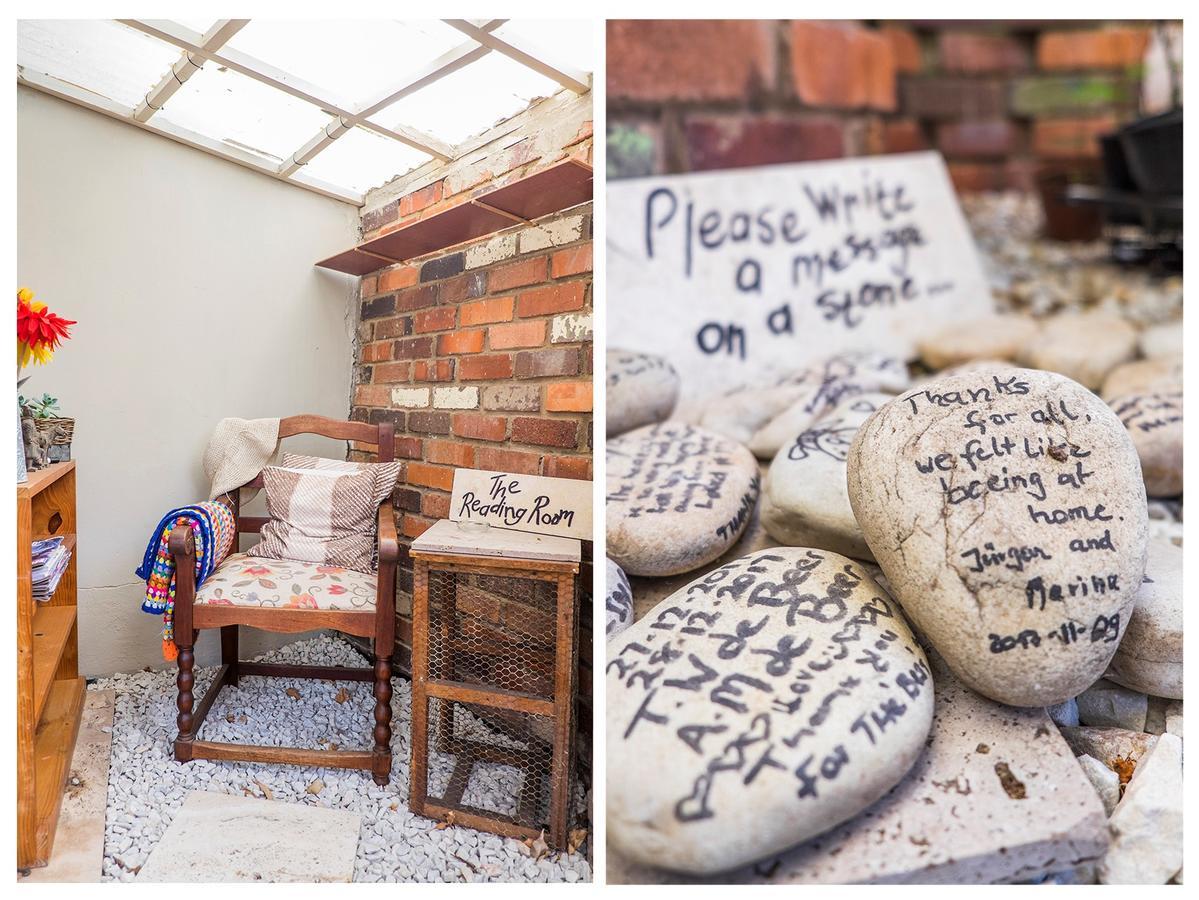 The
Reading Room
Please Write
a message
on a stone...
Thanks
for all,
we felt like
beeing at
home.
Jürgen and
Marina
2017-11-09
27-12-2017
28-12-2017
T.W de Beer
A.M de Beer
Lovely
Thank you
for The Best
THANK